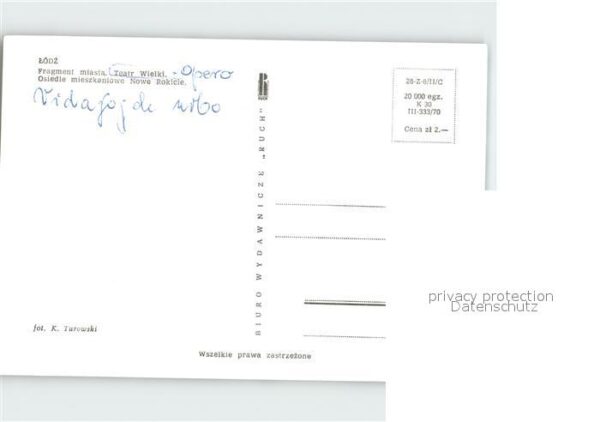 ŁÓDŹ
Fragment miasta. Teatr Wielki. - Opero
Osiedle mieszkaniowe Nowe Rokicie.
Vidaĵoj de urbo
RUCH
BIURO WYDAWNICZE „RUCH"
26-Z-6/II/C
20 000 egz.
K 30
III-333/70
Cena zł 2.—
privacy protection
Datenschutz
fot. K. Turowski
Wszelkie prawa zastrzeżone